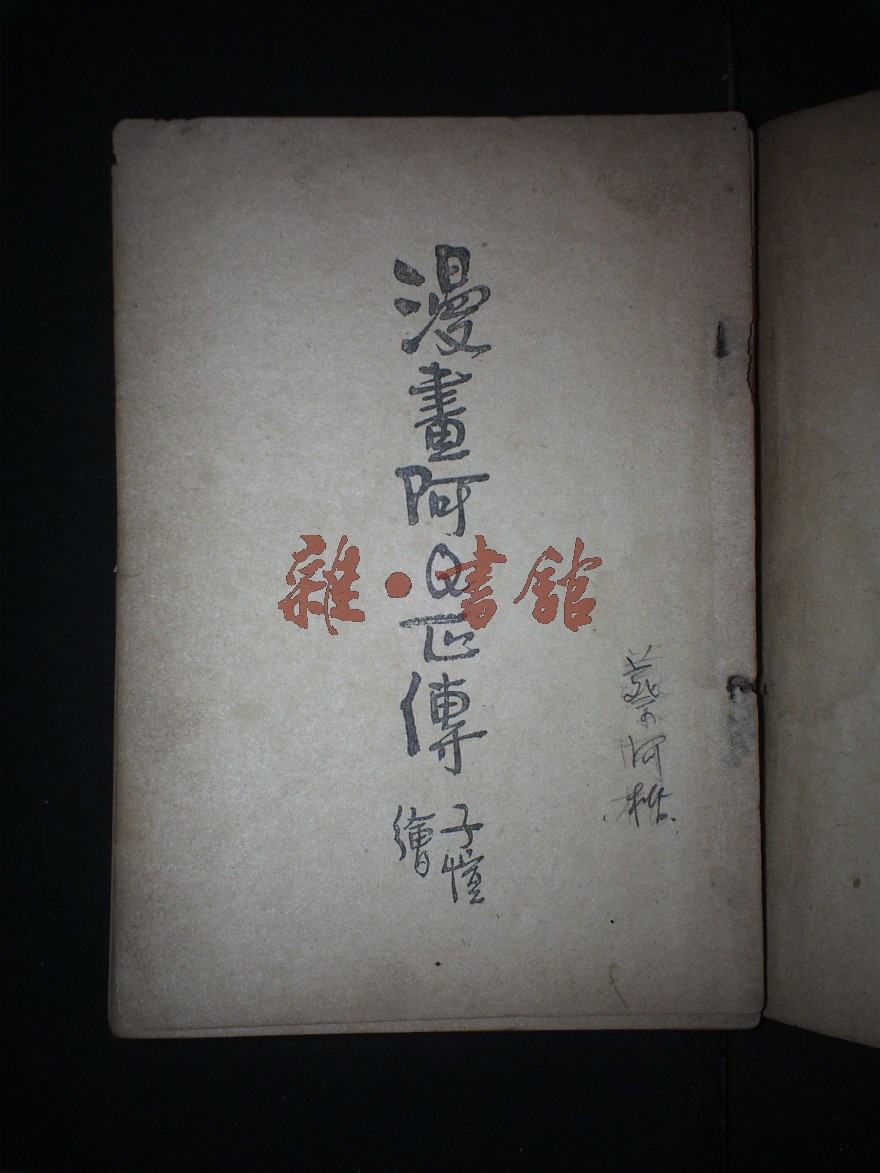 漫畫阿Q正傳
子愷
繪
蔡阿
雜·書館